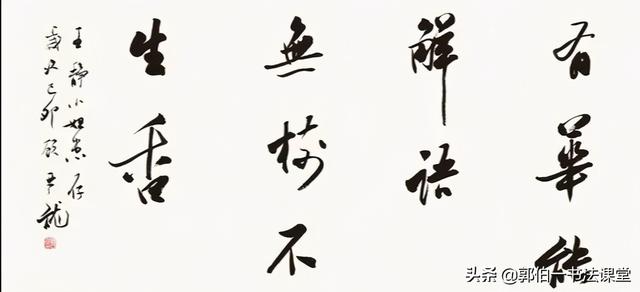 有華能
解語
無樹不
生香
王靜小姐惠存
己卯 龍
头条 @郭伯一书法课堂